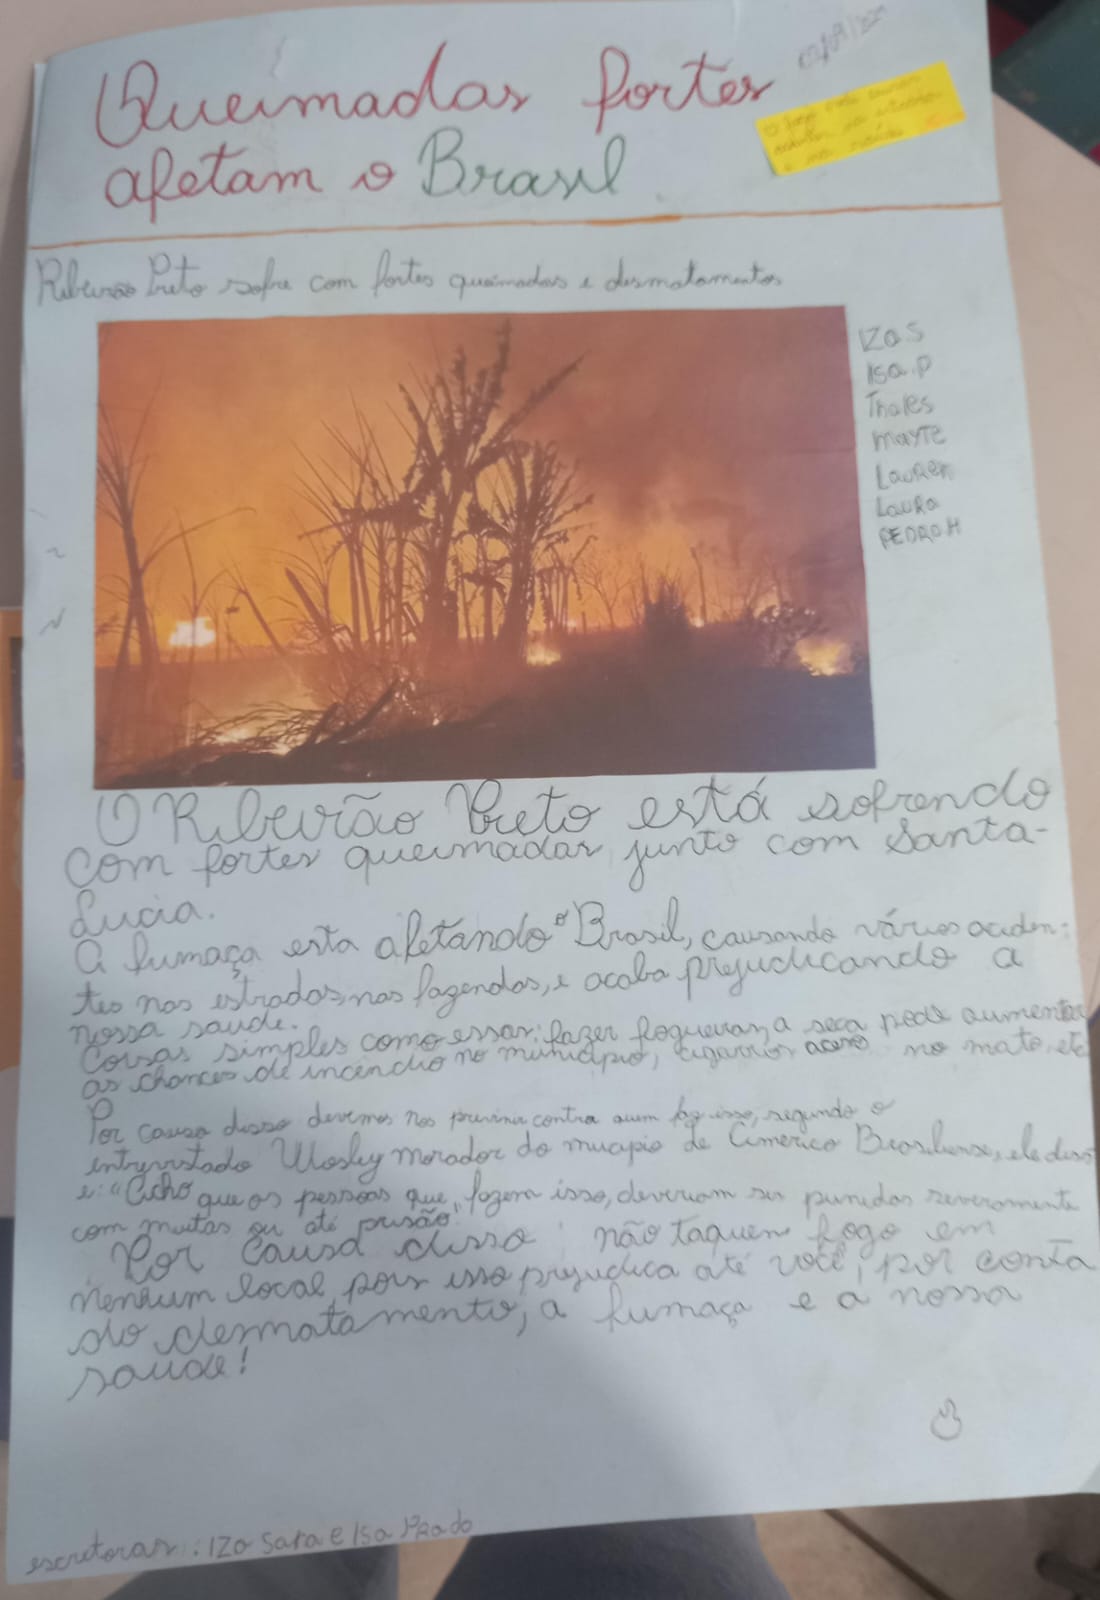 Queimadas fortes
afetam o Brasil
O fogo pode causar
Ribeirão Preto sofre com fortes queimadas e desmatamentos
IZA S
Isa.P
Thales
mayTE
LauRen
Laura
PEDRO H
O Ribeirão Preto está sofrendo
com fortes queimadas, junto com Santa-
Lucia.
A fumaça esta afetando o Brasil, causando vários aciden-
tes nas estradas, nas fazendas, e acaba prejudicando a
nossa saude.
Coisas simples como essas: fazer fogueiras, a seca pode aumentar
as chances de incêncio no município, cigarros aceso no mato, etc
Por causa disso devemos nos previnir contra quem faz isso, segundo o
entrevistado Wesley morador do mucipio de Américo Brasiliense, ele diss
e: "Acho que as pessoas que fazem isso, deveriam ser punidas severamente
com multas ou até prisão."
Por causa disso não taquem fogo em
nenhum local, pois isso prejudica até você, por conta
do desmatamento, a fumaça e a nossa
saude!
escritoras: IZa Sara e Isa Prado